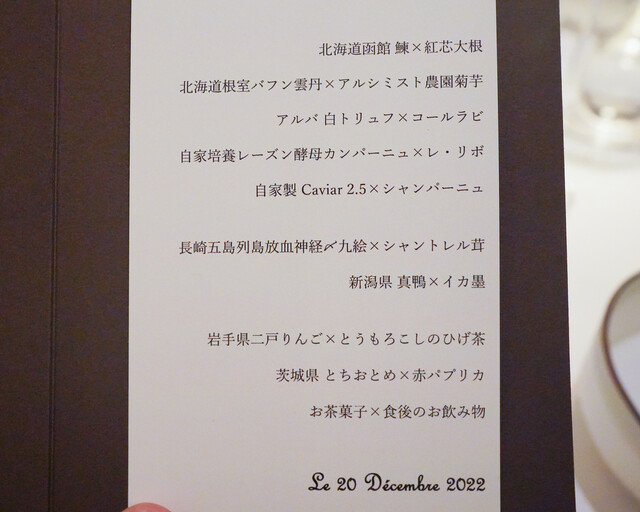 北海道函館 鰊×紅芯大根
北海道根室バフン雲丹×アルシミスト農園菊芋
アルバ 白トリュフ×コールラビ
自家培養レーズン酵母カンパーニュ×レ・リボ
自家製 Caviar 2.5×シャンパーニュ
長崎五島列島放血神経〆九絵×シャントレル茸
新潟県 真鴨×イカ墨
岩手県二戸りんご×とうもろこしのひげ茶
茨城県 とちおとめ×赤パプリカ
お茶菓子×食後のお飲み物
Le 20 Décembre 2022